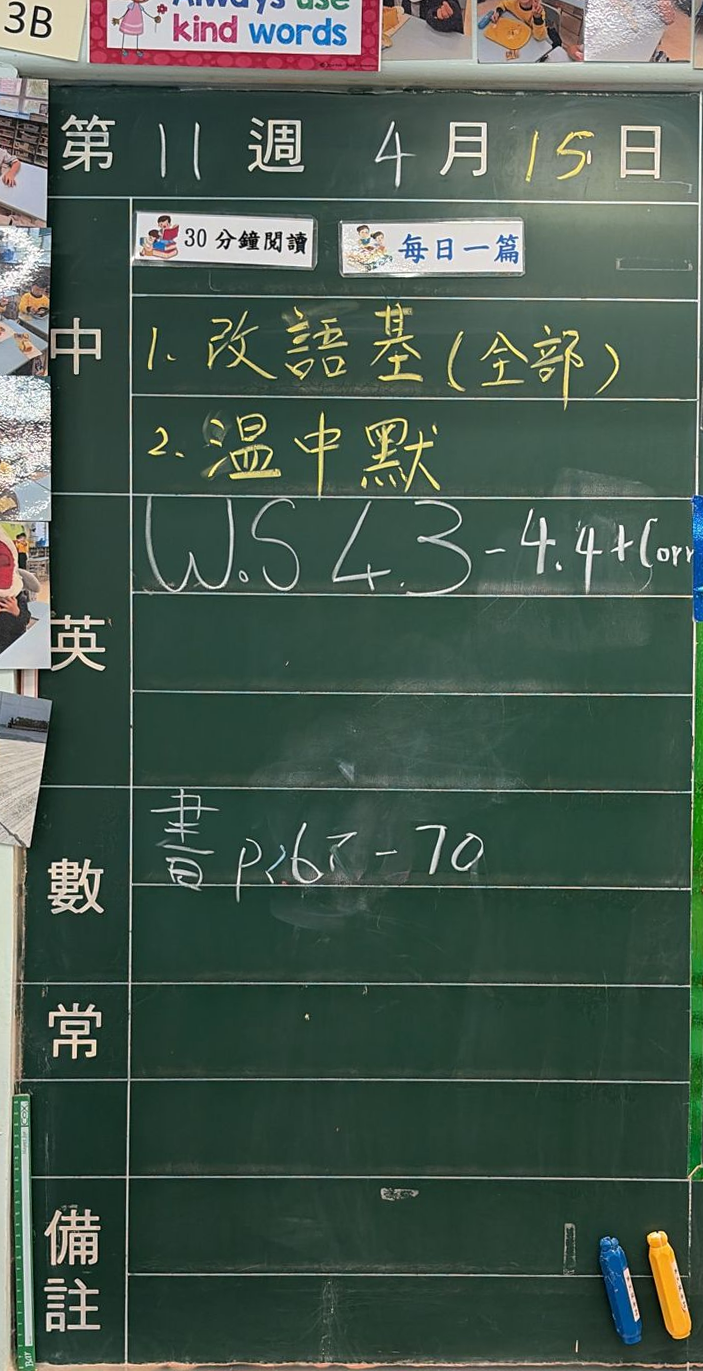 3B
Always use
kind words
第 11 週 4 月 15 日
30分鐘閱讀 每日一篇
中
1. 改語基(全部)
2. 溫中默
英
W.S 4.3 - 4.4 + Corr
數
書 P.67 - 70
常
備註